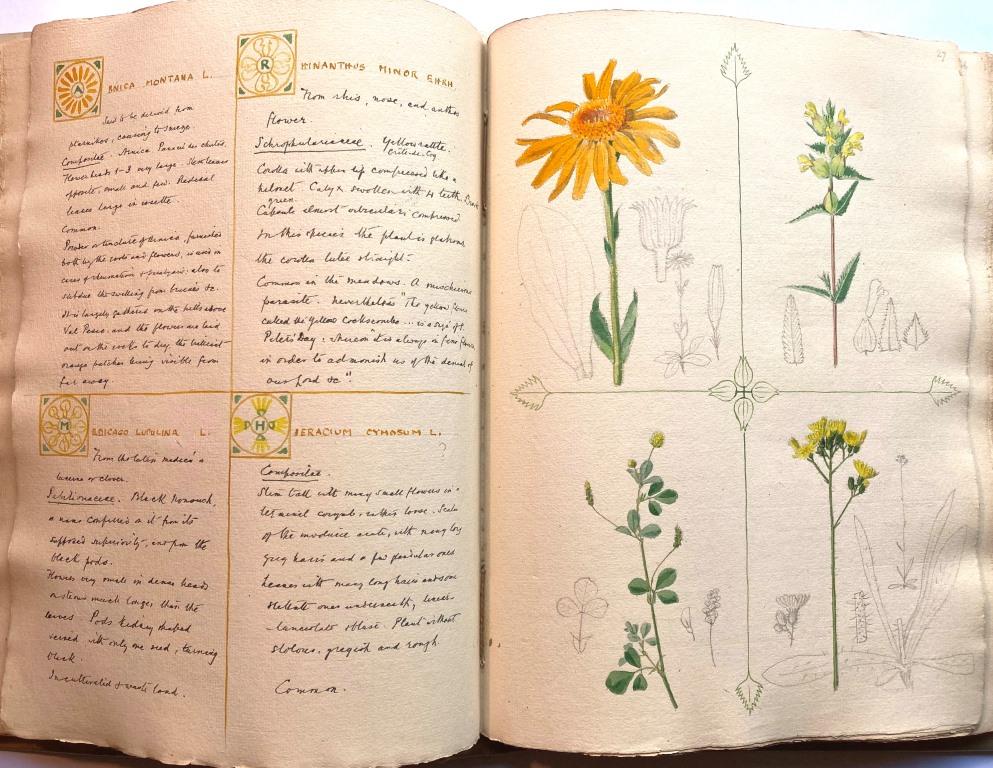 ARNICA MONTANA L.
Said to be derived from
ptarmikos, causing to sneeze.
Compositae. Arnica Panacée des chutes.
Flowerheads 1-3 very large. Stemleaves
opposite, small and few. Radical
leaves large in rosette.
Common.
Powder or tincture of Arnica, furnished
both by the roots and flowers, is used in
cases of rheumatism & paralysis: also to
subdue the swelling from bruises &c.
It is largely gathered on the hills above
Val Pesio and the flowers are laid
out on the rocks to dry, the brilliant
orange patches being visible from
far away.
RHINANTHUS MINOR EHRH.
From rhis, nose, and anthos
flower.
Schrophulariaceae. Yellow rattle.
Crête-de-Coq
Corolla with upper lip compressed like a
helmet. Calyx swollen with 4 teeth,
green.
Capsule almost orbicular: compressed
In this species the plant is glabrous
the corolla tube straight.
Common in the meadows. A mischievous
parasite. Nevertheless "The yellow flower
called the Yellow Cockscombe ... is a sign of St.
Peter's Day: whereon it is always in fine flower
in order to admonish us of the denial of
our Lord &c".
MEDICAGO LUPULINA L.
From the latin medica a
lucerne or clover.
Papilionaceae. Black Nonsuch,
a name conferred on it from its
supposed superiority, and from the
black pods.
Flowers very small in dense heads
on stems much longer than the
leaves. Pods kidney shaped
veined with only one seed, turning
black.
In cultivated & waste land.
HIERACIUM CYMOSUM L.
?
Compositae.
Slim tall with many small flowers in a
terminal corymb, rather loose. Scales
of the involucre acute, with many long
grey hairs and a few glandular ones
Leaves with many long hairs and some
stellate ones underneath, lower
lanceolate obtuse. Plant without
stolons, greyish and rough.
Common.
27